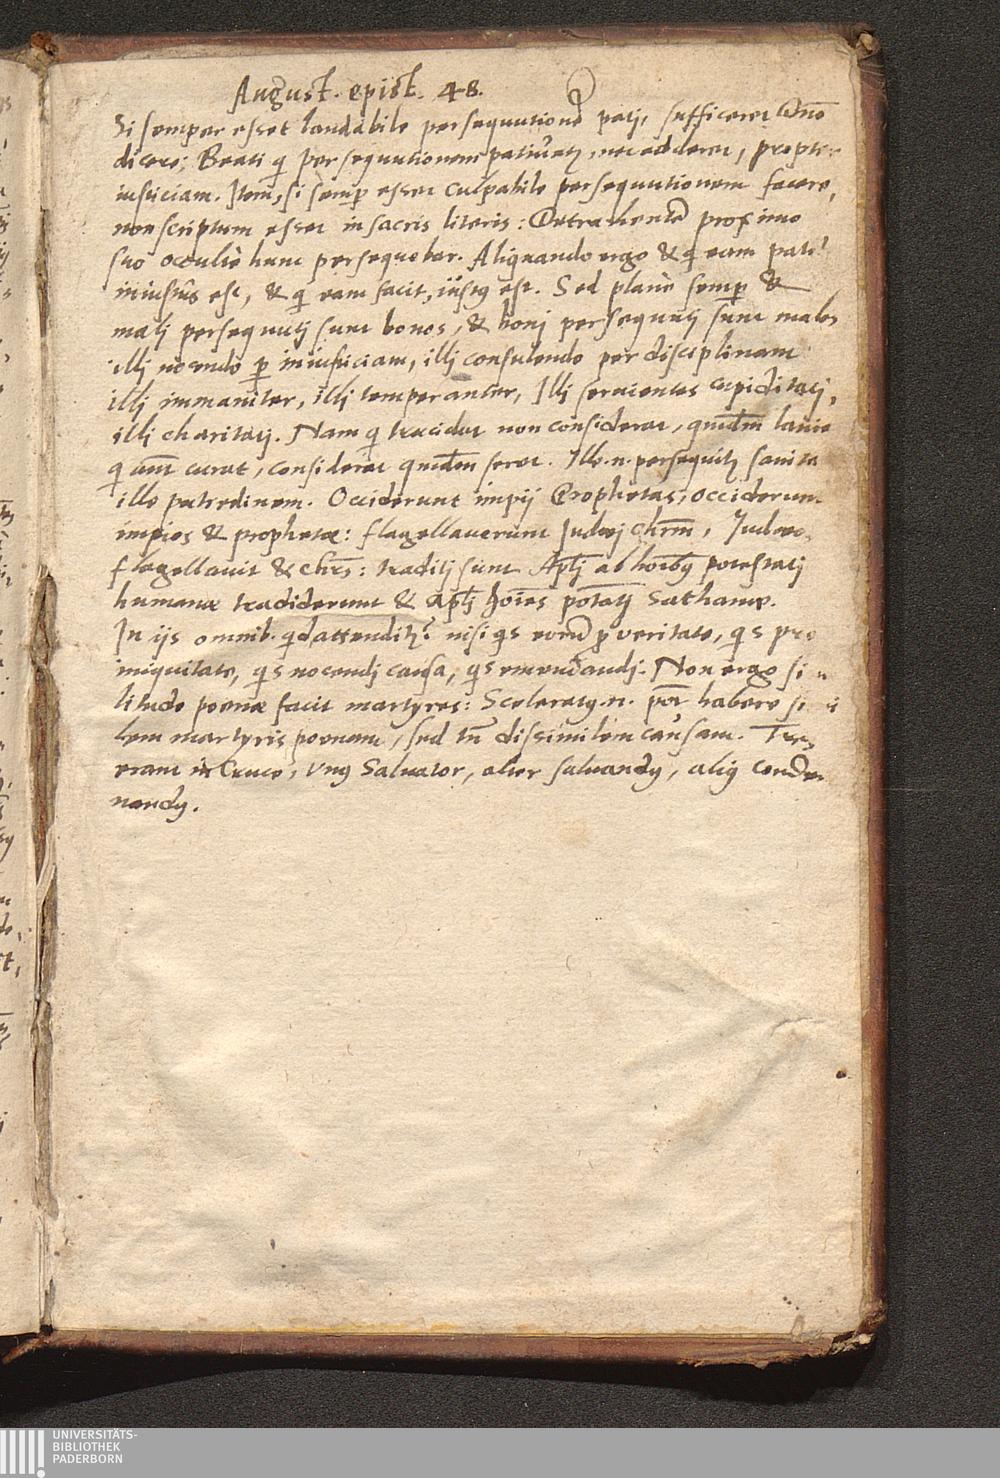 August. epist. 48.
Si semper esset laudabile persequutionē patj, sufficeret Dn̄o
dicere; Beati q̄ persequutionem patiūtꝛ, nec adderet, propter
iusticiam. Item, si semꝑ esset culpabile persequutionem facere,
non scriptum esset in sacris literis: Detrahentē proximo
suo occultè hunc persequebar. Aliquando ergo & q̄ eam patr̃
iniustus est, & q̄ eam facit, iustꝰ est. Sed planè semꝑ &
malj persequutj sunt bonos, & bonj persequutj sunt malos
illj nocendo ꝑ iniusticiam, illj consulendo per disciplinam
illj immaniter, illj temperanter, Illj seruientes cupiditatj,
illj charitatj. Nam q̄ trucidat non considerat, quēadm̄ laniet
q̄ aūt curat, considerat quēadm̄ secet. Ille .n. persequitꝛ sanita
ille putredinem. Occiderunt impij Prophetas, occiderunt
impios & prophetæ: flagellauerunt Judæj Chrm̄, Judæos
flagellauit & Chrs̄: traditj sunt Apl̄j ab hoībꝰ potestatj
humanæ tradiderunt & Apl̄j hoīes potātj Sathanæ.
In ijs omnib. qd attenditꝛ? nisi qs eorū ꝑ veritate, qs pro
iniquitate, qs nocendj causa, qs emendandj. Non ergo si
litudo poenæ facit martyres: Sceleratꝰ .n. pōt habere si i
lem martyris poenam, sed tn̄ dissimilem causam. Tres
erant in Cruce, vnꝰ Saluator, alter saluandꝰ, aliꝰ condem
nandꝰ.
UNIVERSITÄTS-
BIBLIOTHEK
PADERBORN